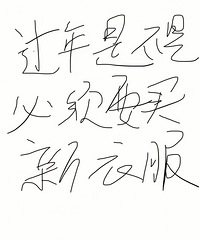 过年是不是
必须要买
新衣服